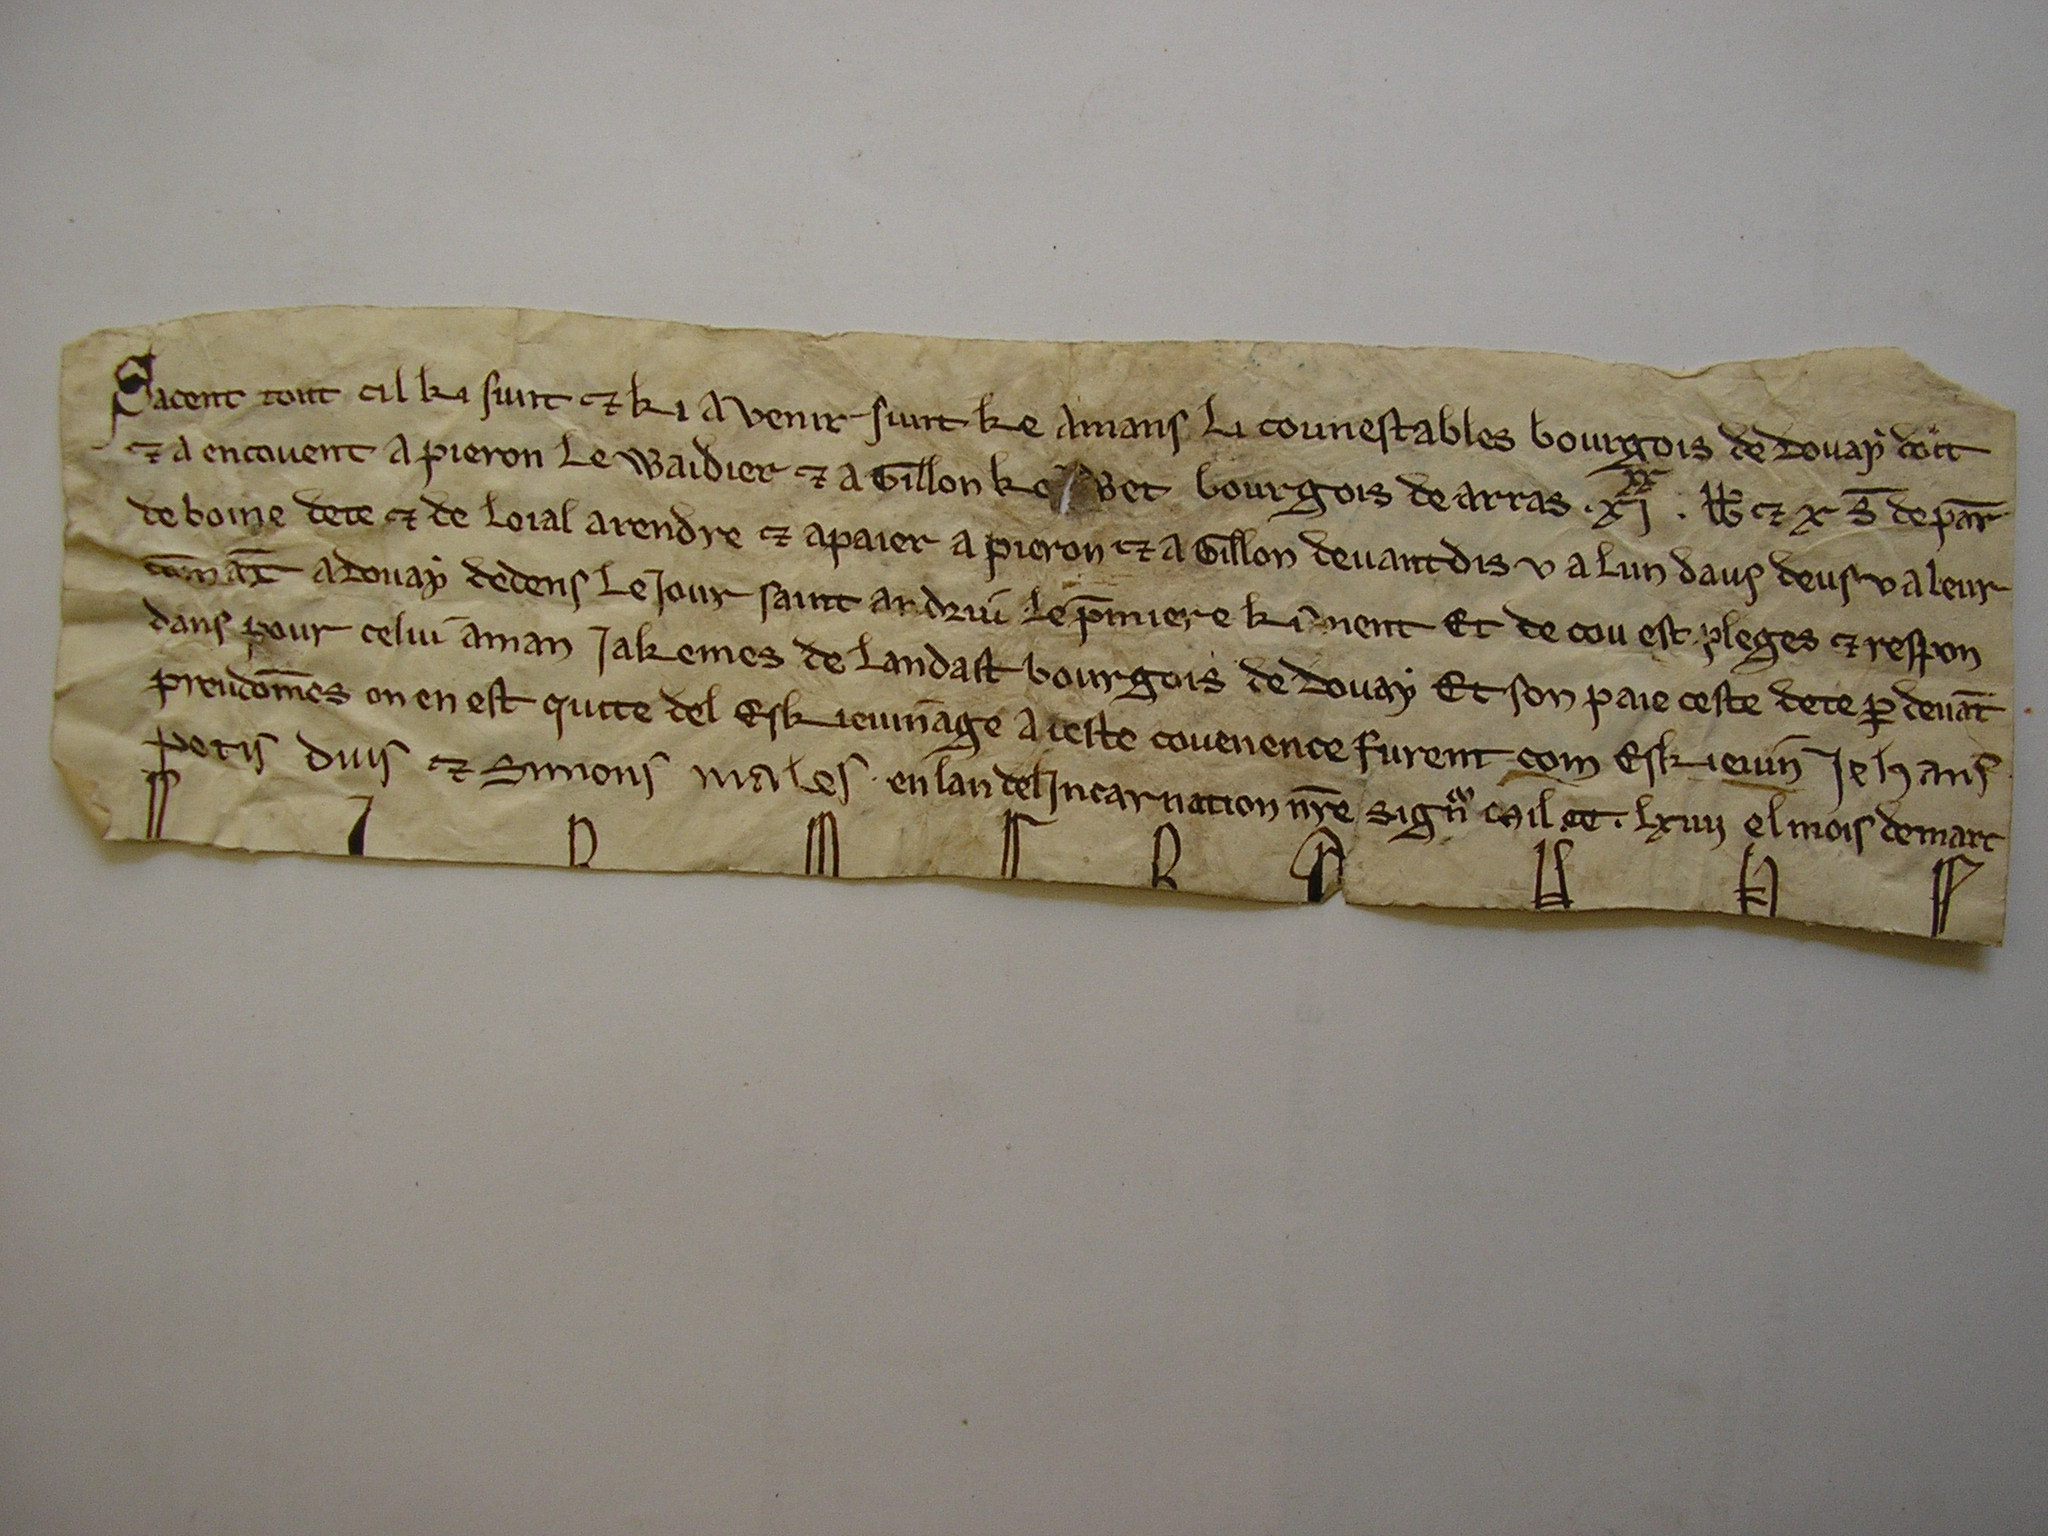 Sacent tout cil ki sunt ⁊ ki a venir sunt ke Amans li counestables bourgois de douay doit
⁊ a en couent a pieron le waidier ⁊ a Gillon bourgois de arras .xj.^xx. lb̄ ⁊ x s̄ de par̄
de boine dete ⁊ de loial a rendre ⁊ a paier a pieron ⁊ a Gillon deuant dis v a lun daus deus v a leur
com̄āt a douay dedens le Jour saint andriu le p̄miere ki uient Et de cou est pleges ⁊ respon
dans pour celui aman Jakemes de landast bourgois de douay Et son paie ceste dete ꝑ deuāt
preudom̄es on en est quite del Eskieuinage A ceste couenence furent com Eskieuin̄ Jehans
petis duis ⁊ Simons males en lan del Incarnation nr̄e Sign̄ Mil .cc. lxiiij el mois de marc